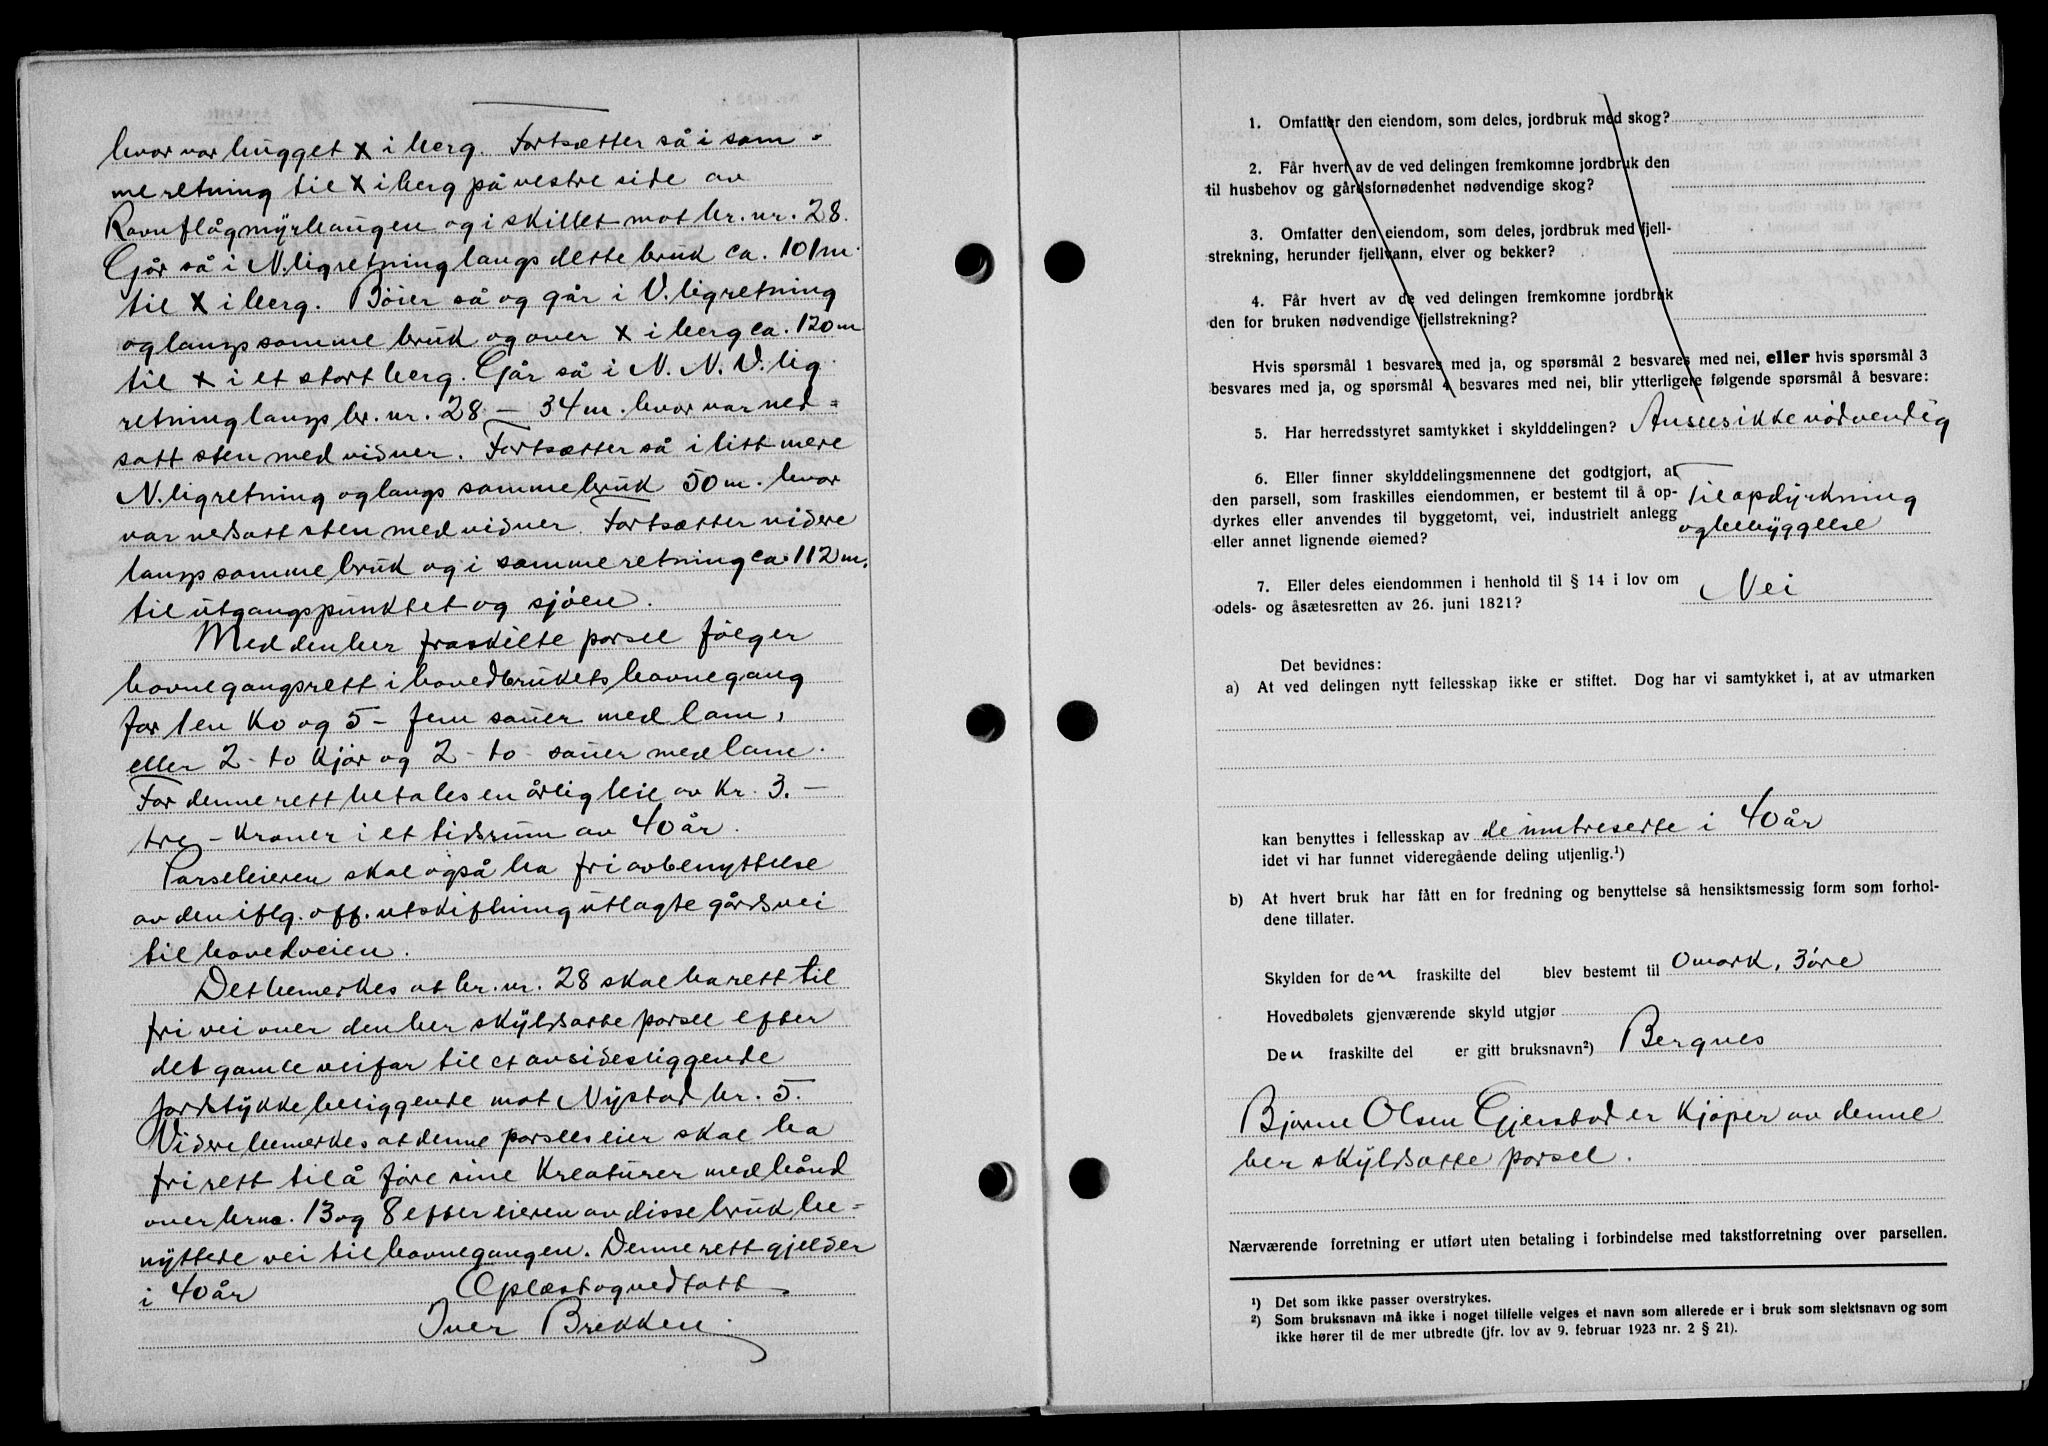 hvor var hugget x i berg. Fortsætter så i sam-
me retning til x i berg på vestre side av
Ravnflågmyrhaugen og i skillet mot br. nr. 28.
Går så i N.lig retning langs dette bruk ca. 101 m.
til x i berg. Bøier så og går i V.lig retning
og langs samme bruk og over x i berg ca. 120 m
til x i et stort berg. Går så i N. N. V. lig
retning langs br. nr. 28 - 34 m. hvor var ned=
satt sten med vidner. Fortsætter så i litt mere
N.lig retning og langs samme bruk 50 m. hvor
var nedsatt sten med vidner. Fortsætter videre
langs samme bruk og i samme retning ca. 112 m.
til utgangspunktet og sjøen.
Med den her fraskilte parsel følger
havnegangsrett i hovedbrukets havnegang
for 1 en ko og 5 - fem sauer med lam,
eller 2 - to kjør og 2 - to - sauer med lam.
For denne rett betales en årlig leie av kr. 3. -
tre - kroner i et tidsrum av 40 år.
Parseleieren skal også ha fri avbenyttelse
av den iflg. off. utskiftning utlagte gårdsvei
til hovedveien.
Det bemerkes at br. nr. 28 skal ha rett til
fri vei over den her skyldsatte parsel efter
det gamle veifar til et avsidesliggende
jordstykke beliggende mot Nystad br. 5.
Videre bemerkes at denne parsels eier skal ha
fri rett til å føre sine kreaturer med hånd
over brno. 13 og 8 efter eieren av disse bruk be=
nyttede vei til havnegangen. Denne rett gjelder
i 40 år Oplæst og vedtatt
Iver Brekken.
1. Omfatter den eiendom, som deles, jordbruk med skog?
2. Får hvert av de ved delingen fremkomne jordbruk den
til husbehov og gårdsfornødenhet nødvendige skog?
3. Omfatter den eiendom, som deles, jordbruk med fjell-
strekning, herunder fjellvann, elver og bekker?
4. Får hvert av de ved delingen fremkomne jordbruk
den for bruken nødvendige fjellstrekning?
Hvis spørsmål 1 besvares med ja, og spørsmål 2 besvares med nei, eller hvis spørsmål 3
besvares med ja, og spørsmål 4 besvares med nei, blir ytterligere følgende spørsmål å besvare:
5. Har herredsstyret samtykket i skylddelingen? Ansees ikke nødvendig
6. Eller finner skylddelingsmennene det godtgjort, at
den parsell, som fraskilles eiendommen, er bestemt til å op- Til opdyrkning
dyrkes eller anvendes til byggetomt, vei, industrielt anlegg og bebyggelse
eller annet lignende øiemed?
7. Eller deles eiendommen i henhold til § 14 i lov om Nei
odels- og åsætesretten av 26. juni 1821?
Det bevidnes:
a) At ved delingen nytt fellesskap ikke er stiftet. Dog har vi samtykket i, at av utmarken
kan benyttes i fellesskap av de inntreserte i 40 år
idet vi har funnet videregående deling utjenlig.¹)
b) At hvert bruk har fått en for fredning og benyttelse så hensiktsmessig form som forhol-
dene tillater.
Skylden for den fraskilte del blev bestemt til 0 mark, 3 øre
Hovedbølets gjenværende skyld utgjør
Den fraskilte del er gitt bruksnavn²) Bergnes
Bjarne Olsen Gjerstad er kjøper av denne
her skyldsatte parsel.
Nærværende forretning er utført uten betaling i forbindelse med takstforretning over parsellen.
¹) Det som ikke passer overstrykes.
²) Som bruksnavn må ikke i noget tilfelle velges et navn som allerede er i bruk som slektsnavn og som
ikke hører til de mer utbredte (jfr. lov av 9. februar 1923 nr. 2 § 21).